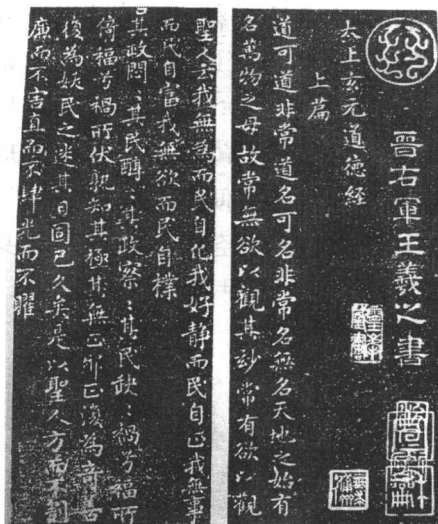 晉右軍王羲之書
太上玄元道德経
上篇
道可道非常道名可名非常名無名天地之始有
名萬物之母故常無欲以觀其玅常有欲以觀
聖人云我無為而民自化我好静而民自正我無事
而民自富我無欲而民自樸
其政悶〻其民醇〻其政察〻其民缺〻禍兮福所
倚福兮禍所伏孰知其極其無正邪正復為奇善
復為妖民之迷其日固已久矣是以聖人方而不割
廉而不害直而不肆光而不曜